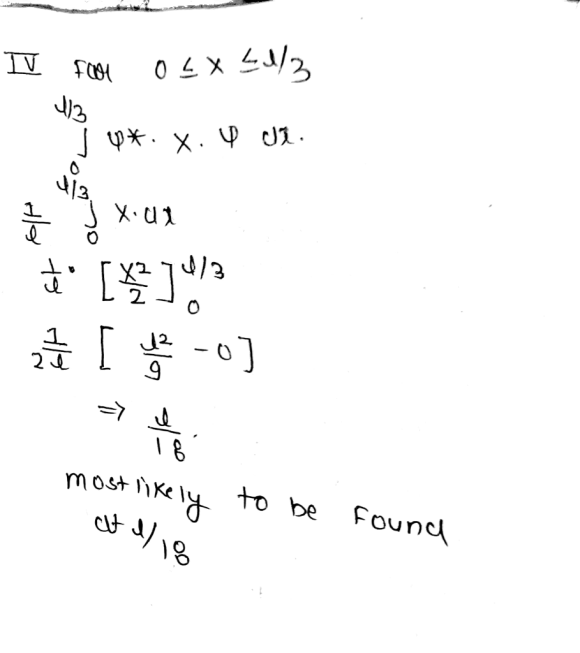 IV For 0 ≤ x ≤ l/3
∫₀^{l/3} ψ*. x. ψ dx.
1/l ∫₀^{l/3} x.dx
1/l . [x²/2]₀^{l/3}
1/2l [l²/9 - 0]
=> l/18.
most likely to be Found
at l/18